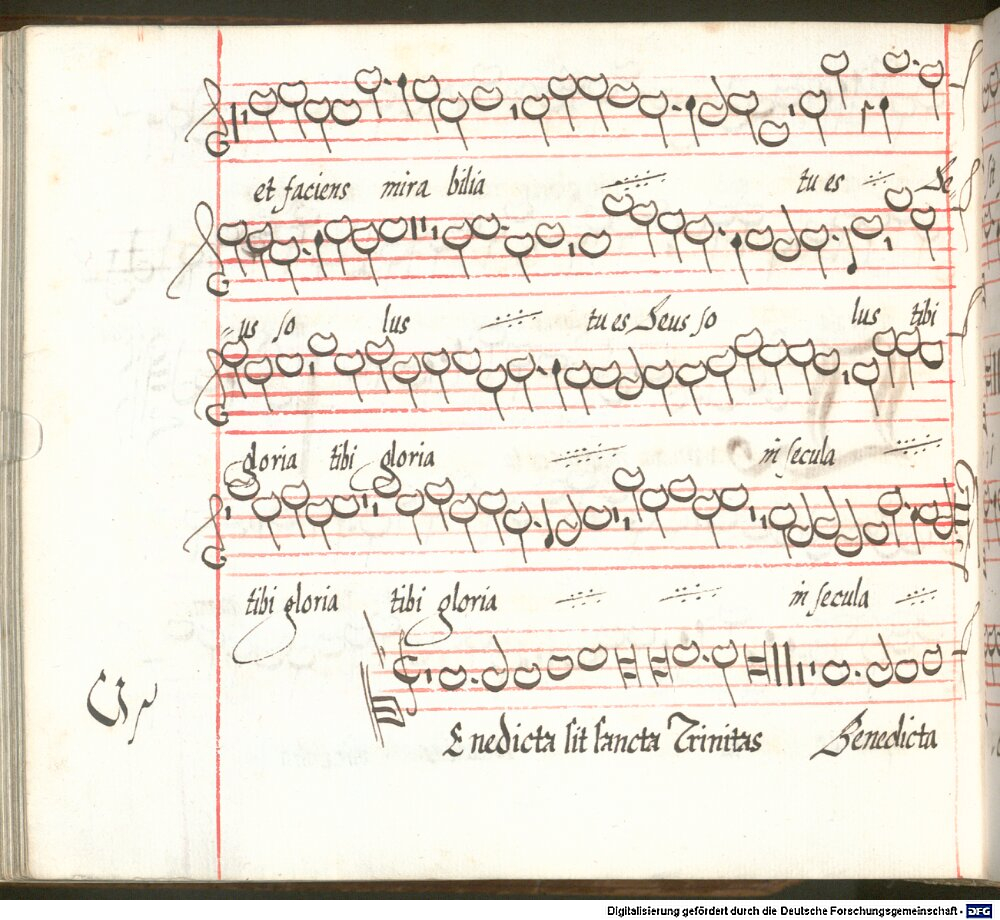 et faciens mira bilia tu es De
us so lus tu es Deus so lus tibi
gloria tibi gloria in secula
tibi gloria tibi gloria in secula
Enedicta sit sancta Trinitas Benedicta
Digitalisierung gefördert durch die Deutsche Forschungsgemeinschaft - DFG